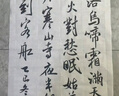 落烏啼霜滿天
火對愁眠姑
寒山寺夜半
到客船